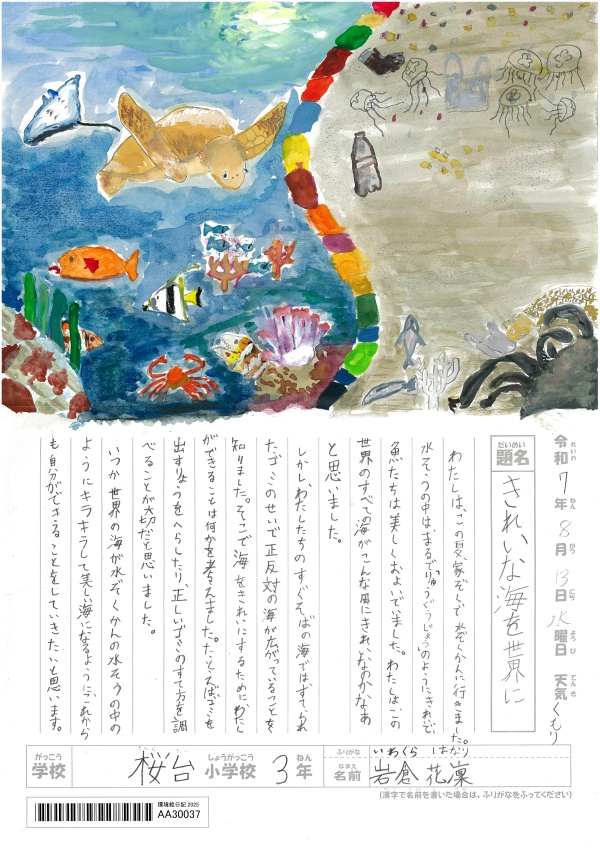 令和7年8月13日水曜日 天気くもり
れいわ ねん がつ にち ようび てんき
だいめい
題名
きれいな海を世界に
わたしは、この夏、家ぞくで水ぞくかんに行きました。
水そうの中は、まるで「りゅうぐうじょう」のようにきれいで
魚たちは美しくおよいでいました。わたしはこの
世界のすべての海がこんな風にきれいなのかなあ
と思いました。
しかし、わたしたちのすぐそばの海では、すてられ
たゴミのせいで正反対の海が広がっていることを
知りました。そこで海をきれいにするために、わたし
ができることは何かを考えました。たとえば、ごみを
出すりょうをへらしたり、正しいゴミのすて方を調
べることが大切だと思いました。
いつか世界の海が水ぞくかんの水そうの中の
ようにキラキラして美しい海になるように、これから
も自分ができることをしていきたいと思います。
がっこう しょうがっこう ねん
学校 桜台 小学校 3年
ふりがな いわくら はなり
なまえ
名前 岩倉 花凜
(漢字で名前を書いた場合は、ふりがなをふってください)
環境絵日記 2025
AA30037